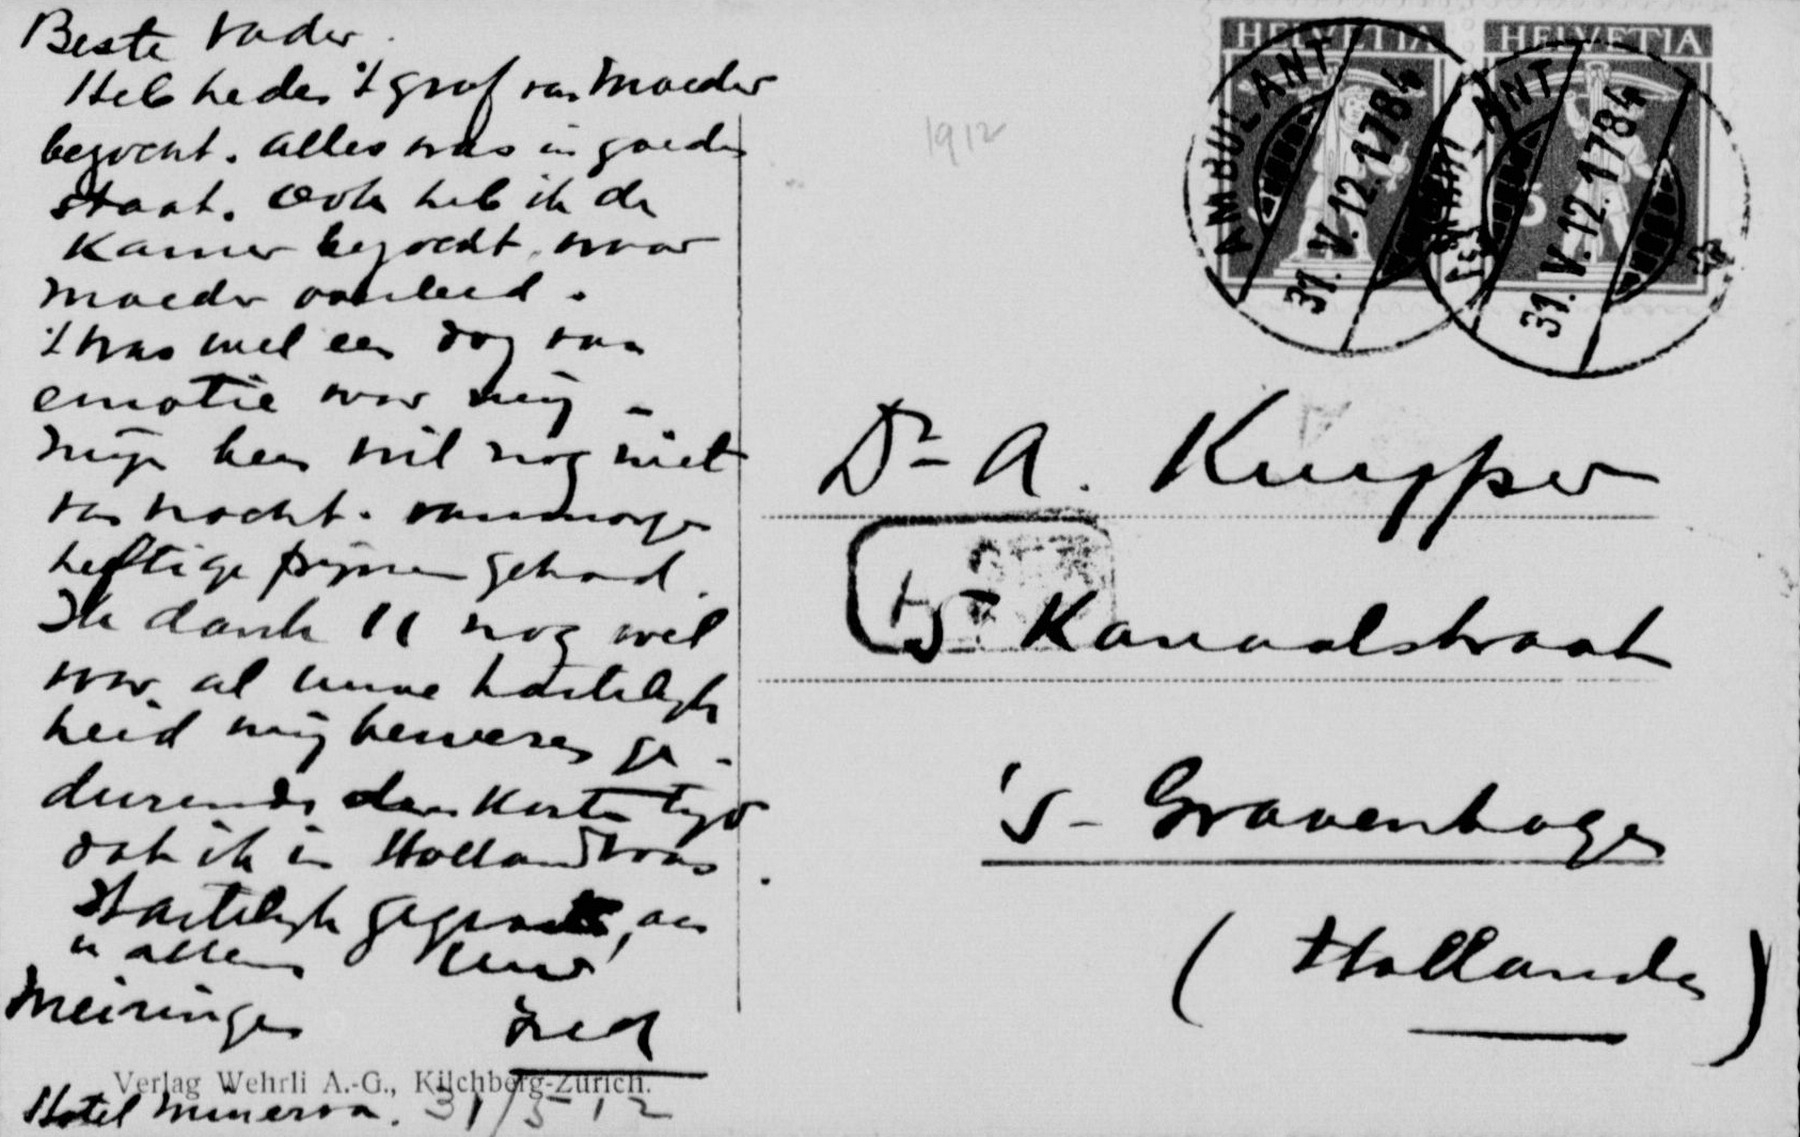 Beste Vader.
Heb heden 't graf van Moeder
bezocht. alles was in goeden
staat. Ook heb ik de
Kamer bezocht, waar
Moeder overleed.
't was wel een dag van
emotie voor mij -
Mijn been wil nog niet
van nacht. vanmorgen
heftige pijnen gehad.
Ik dank U nog wel
voor al uwe hartelijk
heid mij bewezen ge-
durende den korten tijd
dat ik in Holland was.
Hartelijk gegroet, aan
u allen, Uw
Meiringen Fred
Verlag Wehrli A.-G., Kilchberg-Zürich.
Hotel Minerva. 31/5 12
1912
HELVETIA HELVETIA
AMBULANT
31.V.12.1784
31.V.12.1784
Dr A. Kuyper
5 Kanaalstraat
's-Gravenhage
(Hollande)